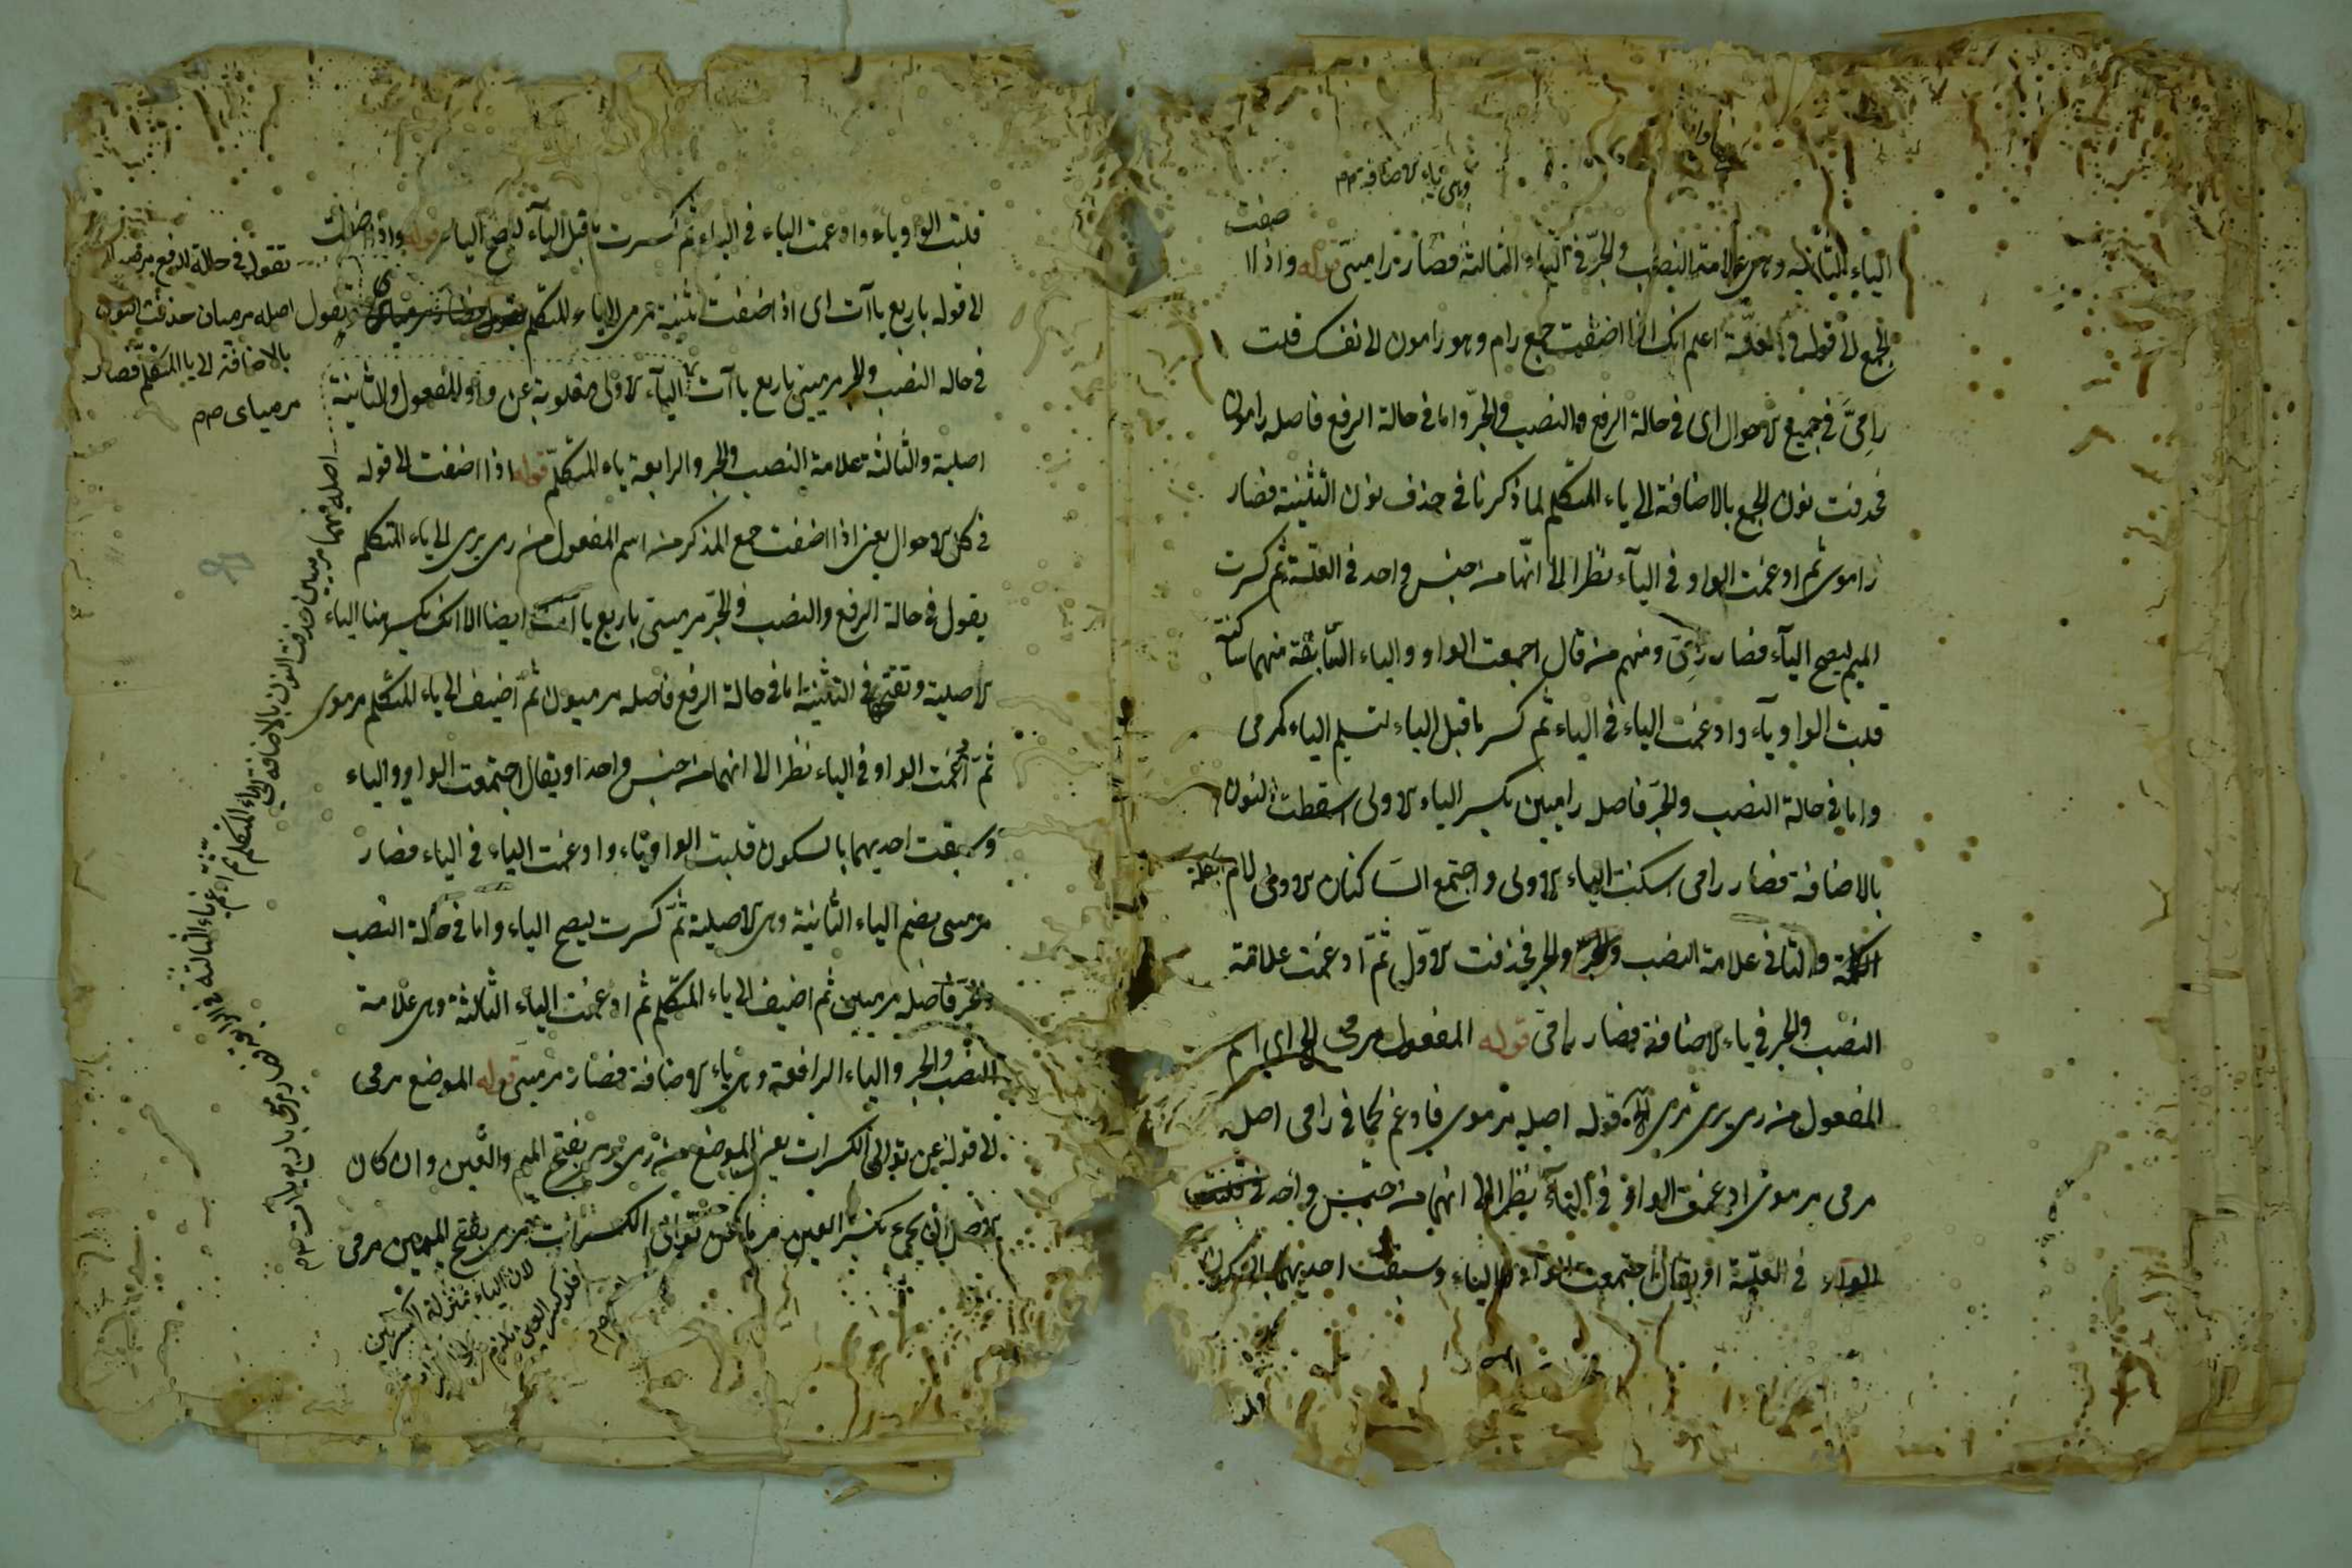 وهى ياء الاضافة صح
الياء الثانية وهى علامة النصب والجرّ فى الياء الثالثة فصار راميىّ قوله واذا اضفت
الجمع الى قوله فى العلّة اعلم انك اذا اضفت جمع رام وهو رامون الى نفسك قلت
رامِىَّ فى جميع الاحوال اى فى حالة الرفع والنصب والجرّ واما فى حالة الرفع فاصله رامون
فحذفت نون الجمع بالاضافة الى ياء المتكلم لما ذكرنا فى حذف نون التثنية فصار
راموى ثم ادغمت الواو فى اليآء نظرا الى انّهما من جنس واحد فى العلّة ثم كسرت
الميم ليصح اليآء فصار رامِىّ ومنهم من قال اجمعت الواو والياء السّابقة منهما ساكنة
قلبت الواو يآء وادغمت الياء فى الياء ثم كسر ما قبل الياء لتسليم الياء كمرمى
واما فى حالة النصب والجرّ فاصل راميين بكسر الياء الاولى اسقطت النون
بالاضافة فصار رامى اسكنت الياء الاولى واجتمع السّاكنان الاولى لام
الكلمة والثانى علامة النصب والجر فحذفت الاوّل ثمّ ادغمت علامة
النصب والجر فى ياء الاضافة فصار رامىّ قوله المفعول مرمى الخ اى اسم
المفعول من رمى يرمى مرمى الخ قوله اصله مرموى فادغم كما فى رامى اصل
مرمى مرموى ادغمت الواو فى اليآء نظرا الى انهما من جنس واحد
فى العلّة او يقال اجتمعت الواو والياء وسبقت احديهما بالسكون
قلبت الواو ياء وادغمت الياء فى الياء ثم كسرت ما قبل اليآء ليصح الياء قوله واذا اضفت
الى قوله باربع ياآت اى اذا اضفت تثنية مرمى الى ياء المتكلم تقول
فى حالة النصب والجر مرميىّ باربع ياآت اليآء الاولى مقلوبة عن واو المفعول والثانية
اصلية والثالثة علامة النصب والجر والرابعة ياء المتكلّم قوله اذا اضفت الى قوله
فى كل الاحوال يعنى اذا اضفت جمع المذكر من اسم المفعول من رمى يرمى الى ياء المتكلم
يقول فى حالة الرفع والنصب والجرّ مرميىّ باربع ياآت ايضا الا انك تكسر هنا الياء
الاصلية وتفتح فى التثنية اما فى حالة الرفع فاصله مرميون ثم اضيف الى ياء المتكلم مرموى
ثمّ ادغمت الواو فى الياء نظرا الى انهما من جنس واحد او يقال اجتمعت الواو والياء
وسبقت احديهما بالسكون قلبت الواو ياء وادغمت الياء فى الياء فصار
مرميى بضم الياء الثانية وهى الاصلية ثمّ كسرت ليصح الياء واما فى حالة النصب
والجرّ فاصله مرميين ثم اضيف الى ياء المتكلم ثم ادغمت الياء الثالثة وهى علامة
النصب والجر والياء الرابعة وهى ياء الاضافة فصار مرميىّ قوله الموضع مرمى
الى قوله عن توالى الكسرات يعنى الموضع من رمى يرمى بفتح الميم والعين وان كان
الاصل ان يجئ بكسر العين عن توالى الكسرات بفتح الميم مرمى
تقول فى حالة الرفع
اصله مرميان حذفت النون
بالاضافة الى ياء المتكلم فصار
مرمياى صح
اصله فيهما مرميين حذفت النون بالاضافة الى ياء المتكلم ثم ادغم
ياء الثالثة فى الرابعة
فصار مرميىّ باربع ياآت صح
لان الياء بمنزلة الكسرتين
فلو كسر العين يلزم